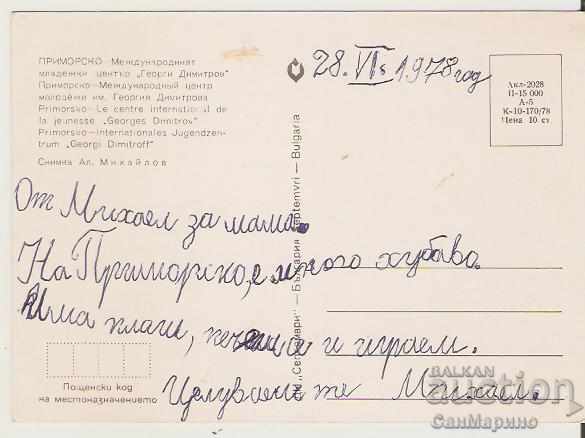 ПРИМОРСКО—Международният
младежки център „Георги Димитров“
Приморско—Международный центр
молодёжи им. Георгия Димитрова
Primorsko—Le centre international de
la jeunesse „Georges Dimitrov“
Primorsko—Internationales Jugendzen-
trum „Georgi Dimitroff“
Снимка Ал. Михайлов
28. VI 1978 год
Акл-2028
П-15 000
А-5
К-10-170/78
Цена 10 ст
ДИ „Септември“ — България Septemvri — Bulgaria
От Михаел за мама.
На Приморско, е много хубаво.
Има плаж, и играем.
Целувам те Михаел.
Пощенски код
на местоназначението
BALKAN
auction
СанМарино